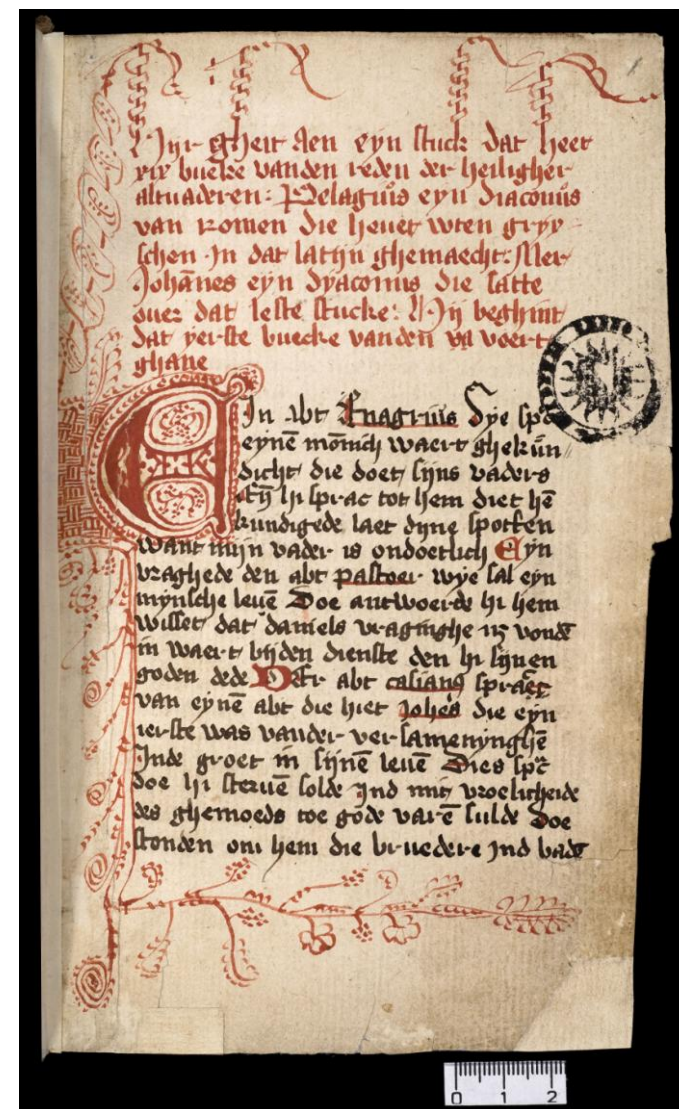 Hijr gheit aen eyn stuck dat heet
xix buecke vanden reden der heiligher
altuaderen: Pelagius eyn diaconus
van romen die heuet wten gryx
schen in dat latijn ghemaecht: Mer
Johānes eyn dyaconus die satte
ouer dat leste stucke: Hij beghint
dat yerste buecke vanden va voert
ghane
In abt Euagrius Dye sp̄c
eynē mōnich waert ghekūn
dicht die doet sijns vaders
Eñ hi sprac tot hem diet hē
kundigede laet dyne spotten
want mijn vader is ondoetlich Eyn
vraghede den abt pastoer wye sal eyn
mynsche leuē Doe antwoerde hi hem
wisset dat daniels vraginghe vondē
in waert bijden dienste den hi sijnen
goden dede Der abt casianus spraec
van eynē abt die hiet Johēs die eyn
ierste was vander versamenynghē
Inde groet in sijnē leuē Dies sp̄c
doe hi steruē solde Ind mit vroelicheide
des ghemoeds toe gode varē sulde Doe
stonden om hem die bruedere Ind badē
0 1 2